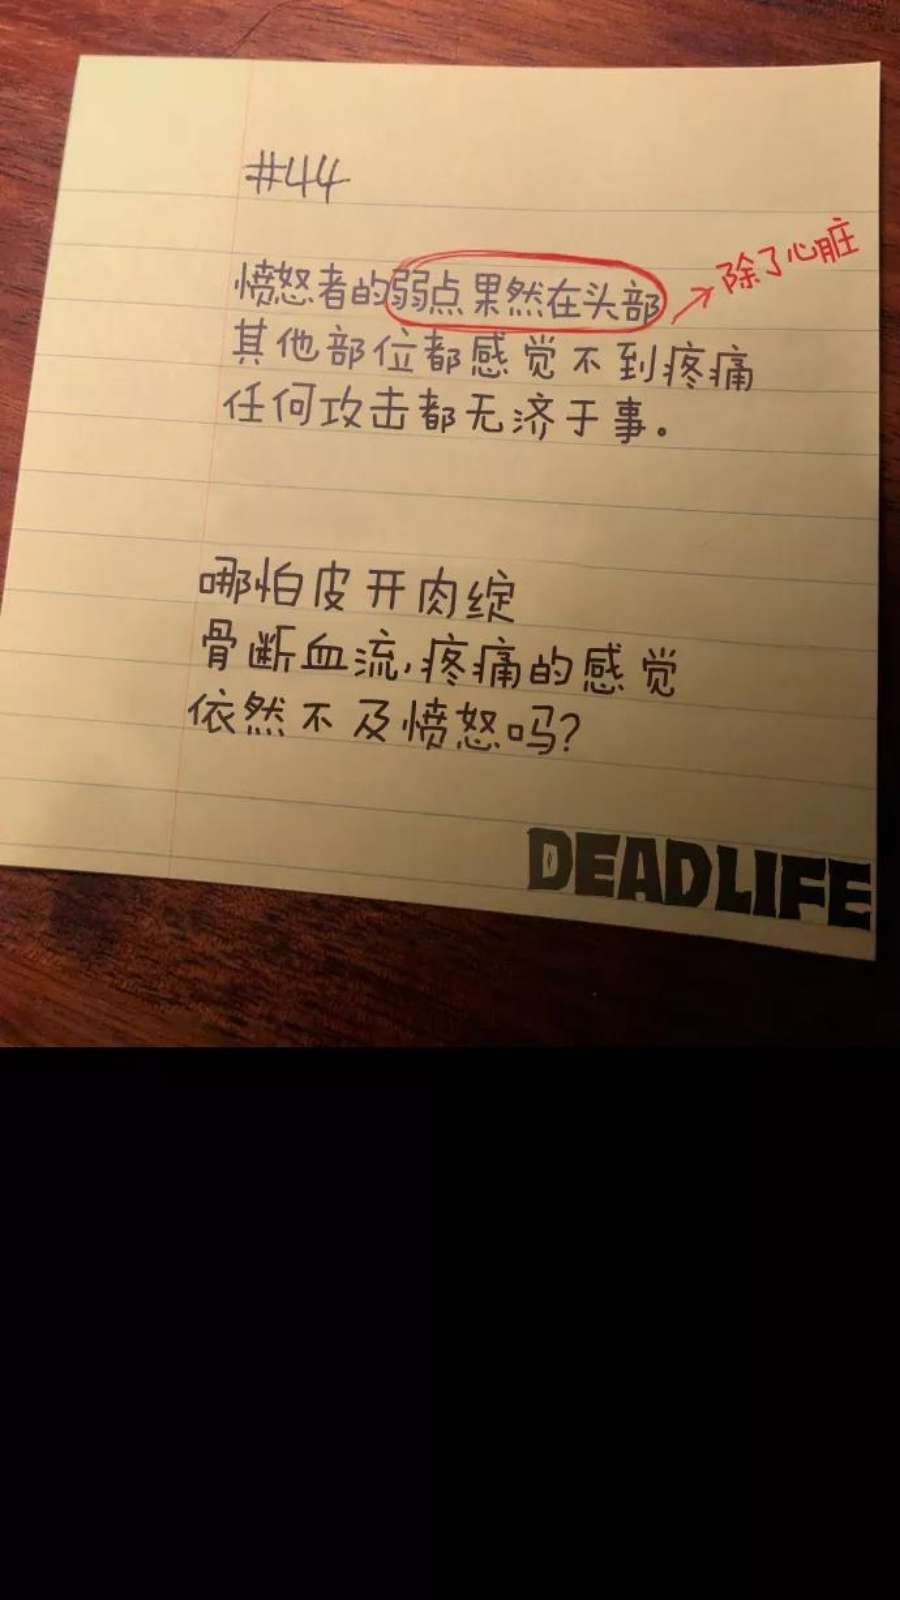 #44
愤怒者的弱点果然在头部
除了心脏
其他部位都感觉不到疼痛
任何攻击都无济于事。
哪怕皮开肉绽
骨断血流,疼痛的感觉
依然不及愤怒吗?
DEADLIFE